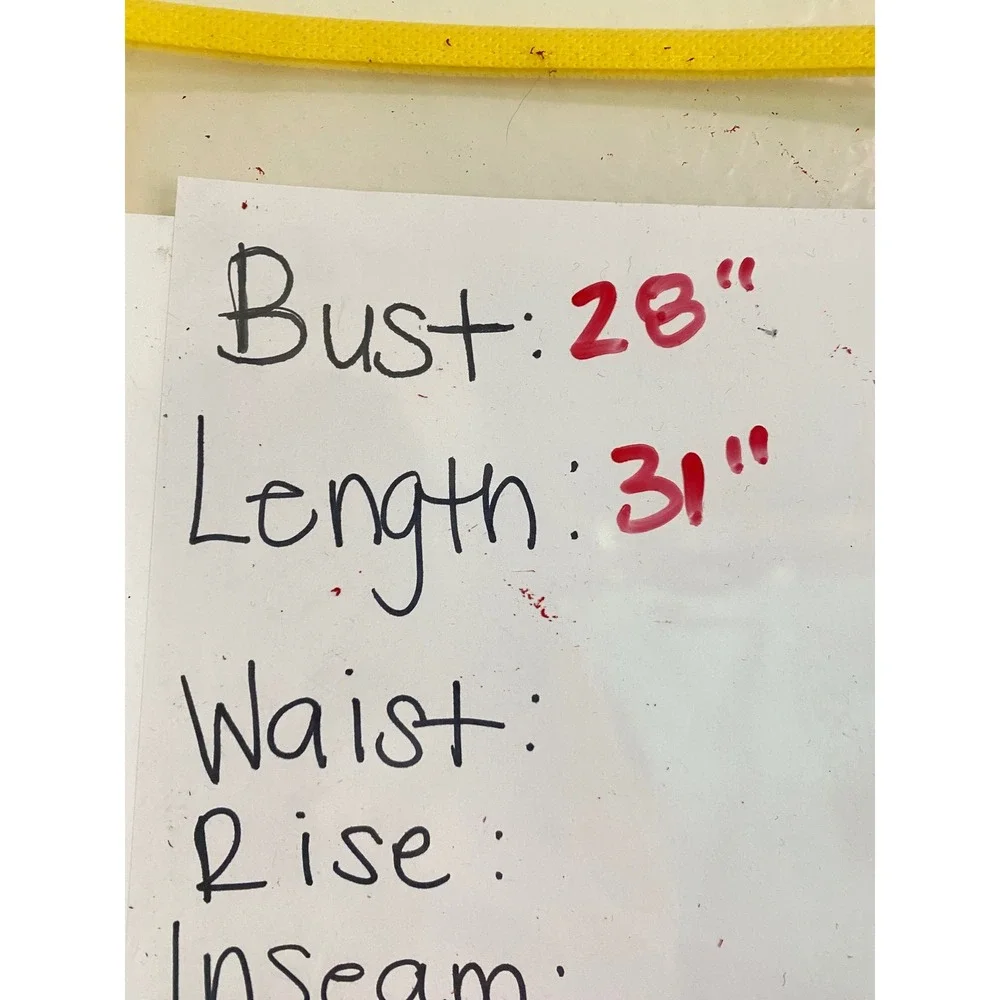 Bust: 28"
Length: 31"
Waist:
Rise:
Inseam: